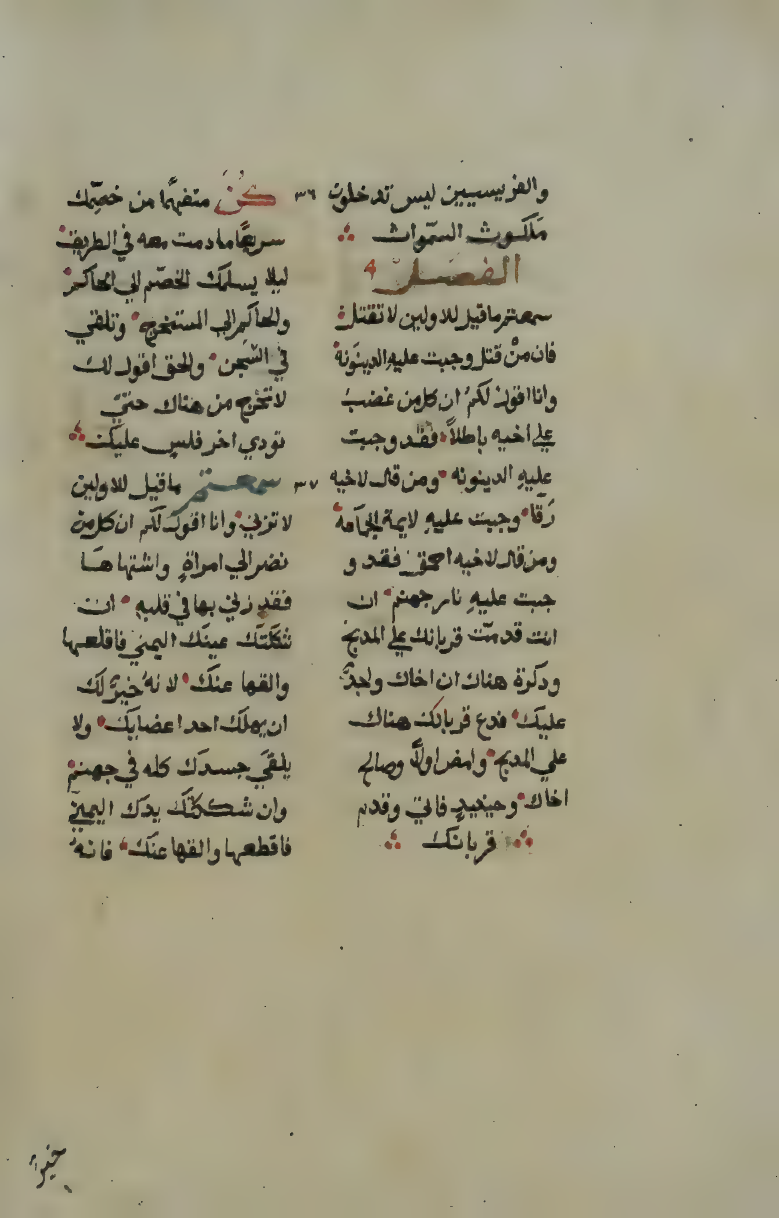 والفريسيين ليس تدخلون
ملكوت السموات
الفصل ٩
سمعتم ماقيل للاولين لا تقتل
فان من قتل وجبت عليه الدينونة
وانا اقول لكم ان كل من غضب
علي اخيه باطلاً فقد وجبت
عليه الدينونه ومن قال لاخيه
رقا وجبت عليه لايمة الجماعه
ومن قال لاخيه احمق فقد و
جبت عليه نار جهنم ان
انت قدمت قربانك علي المدبح
ودكرة هناك ان اخاك واجدٌ
عليك فدع قربانك هناك
علي المدبح وامض اولاً وصالح
اخاك وحينيدٍ فاتي وقدم
قربانك
٣٦ كن متفهماً من خصمك
سريعاً مادمت معه في الطريق
ليلا يسلمك الخصم الي الحاكم
والحاكم الي المستخرج وتلقي
في السجن والحق اقول لك
لا تخرج من هناك حتي
تودي اخر فلس عليك
٣٧ سمعتم ماقيل للاولين
لا تزني وانا اقول لكم ان كل من
نضر الي امراةٍ واشتهاها
فقد زني بها في قلبه ان
شككتك عينك اليمني فاقلعها
والقها عنك لانه خيرٌ لك
ان يهلك احد اعضايك ولا
يلقي جسدك كله في جهنم
وان شككتك يدك اليمني
فاقطعها والقها عنك فانه
خيرٌ